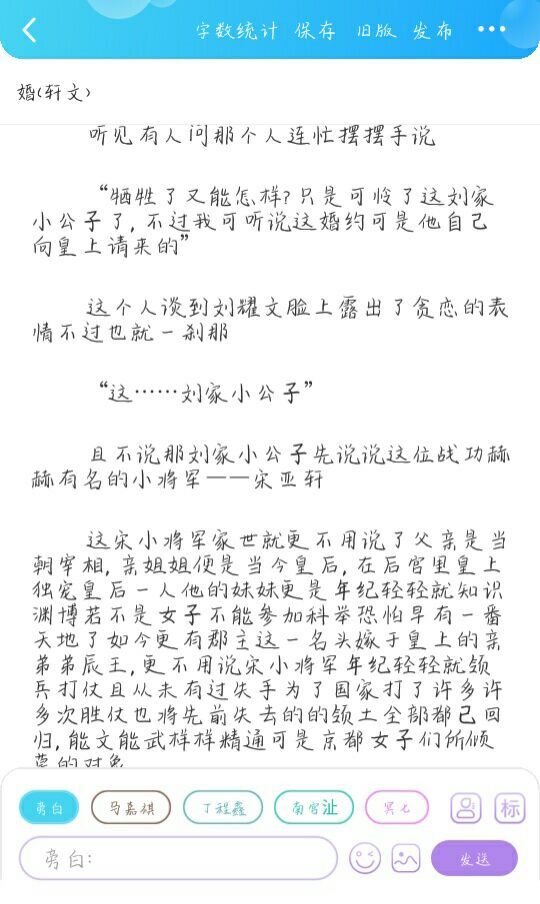 字数统计 保存 旧版 发布 •••
婚(轩文)
听见有人问那个人连忙摆摆手说
“牺牲了又能怎样?只是可怜了这刘家
小公子了,不过我可听说这婚约可是他自己
向皇上请来的”
这个人谈到刘耀文脸上露出了贪恋的表
情不过也就一刹那
“这……刘家小公子”
且不说那刘家小公子先说说这位战功赫
赫有名的小将军——宋亚轩
这宋小将军家世就更不用说了父亲是当
朝宰相,亲姐姐便是当今皇后,在后宫里皇上
独宠皇后一人他的妹妹更是年纪轻轻就知识
渊博若不是女子不能参加科举恐怕早有一番
天地了如今更有郡主这一名头嫁于皇上的亲
弟弟辰王,更不用说宋小将军年纪轻轻就领
兵打仗且从未有过失手为了国家打了许多许
多次胜仗也将先前失去的的领土全部都己回
归,能文能武样样精通可是京都女子们所倾
慕的对象
旁白 马嘉祺 丁程鑫 南宫沚 冥七 标
旁白: 发送